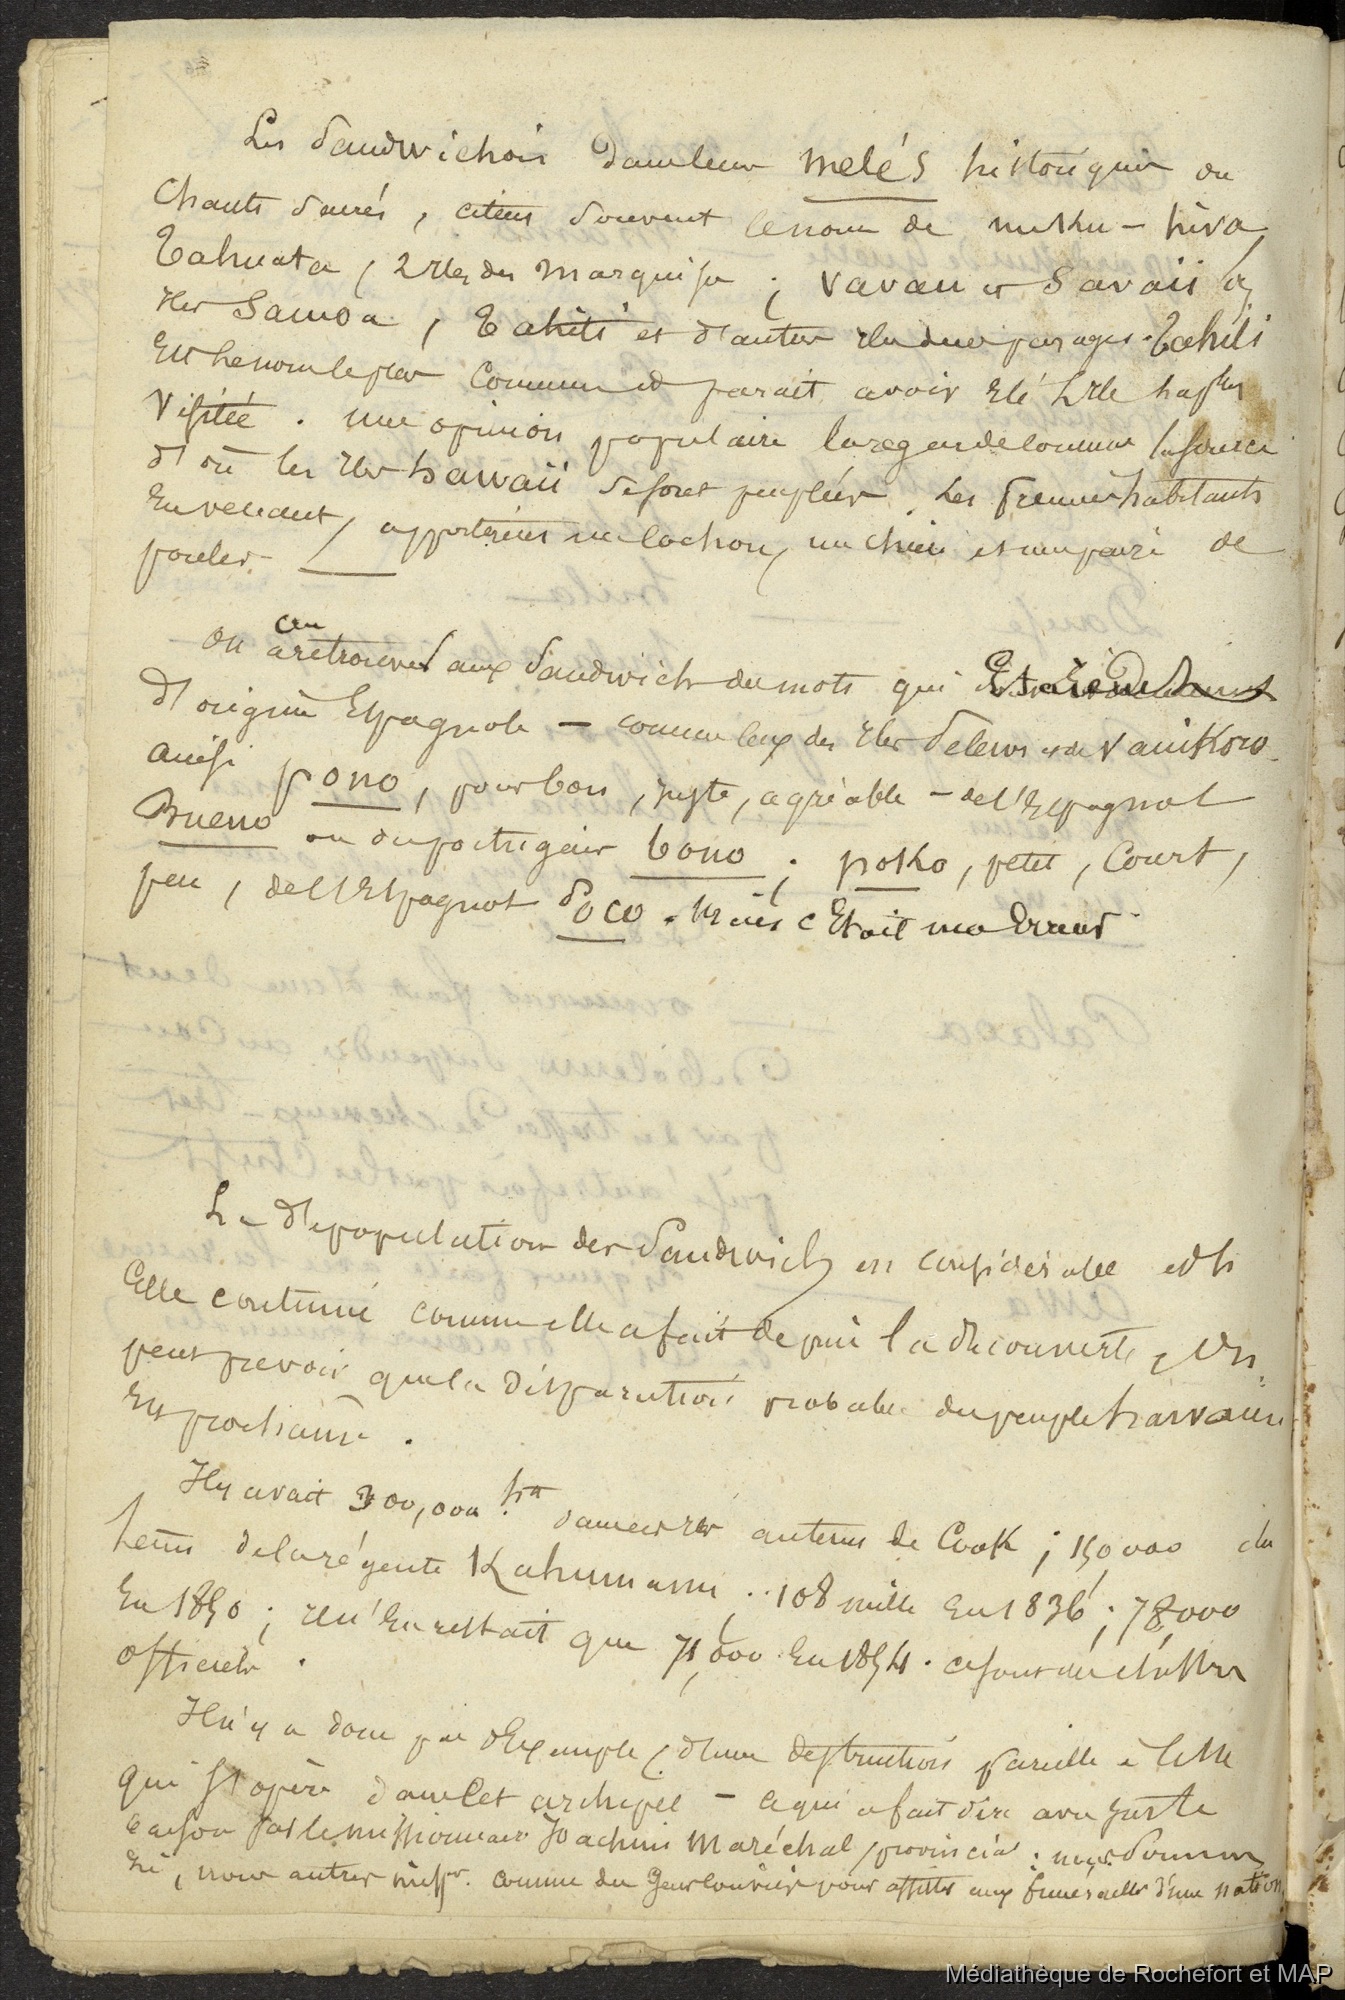 Les Sandwichois dans leurs melés historiques ou
Chants sacrés, citent souvent le nom de nuku-hiva,
Tahuata, 2 Iles des Marquises; vavau et Savaii des
Iles Samoa, Tahiti et d'autres Iles de ces parages. Tahiti
Est le nom le plus commun et parait avoir Eté l'Ile la plus
visitée. une opinion populaire la regarde comme la source
d'où les Iles hawaii se sont peuplées. Les premiers habitants
En venant, apportèrent un cochon, un chien et une paire de
poules.
cru
on a retrouver aux Sandwich des mots qui
d'origine Espagnole - comme ceux des Iles et de Vanikoro.
ainsi pono, pour bon, juste, agréable - de l'Espagnol
Bueno ou du portugais bono; poko, petit, court,
peu, de l'Espagnol poco. Mais c'Etait une Erreur.
La dépopulation des Sandwich est considérable et si
Elle continue comme elle a fait depuis la découverte, On
peut prevoir que la disparution probable du peuple hawaien
Est prochaine.
Il y avait 300,000 htts dans ces Iles au tems de Cook; 150,000 du
tems de la régente Kahumanu; 108 mille en 1836; 78,000
En 1850; Il n'En restait que 71,000 En 1854. ce sont des chiffres
officiels.
Il n'y a donc pas d'Exemple d'une destruction pareille à celle
qui s'opère dans cet archipel - ce qui a fait dire avec juste
raison par le missionnaire Joachim Maréchal, provincial: nous sommes
ici, nous autres missres. comme des pour assister aux funérailles d'une nation.
Médiathèque de Rochefort et MAP